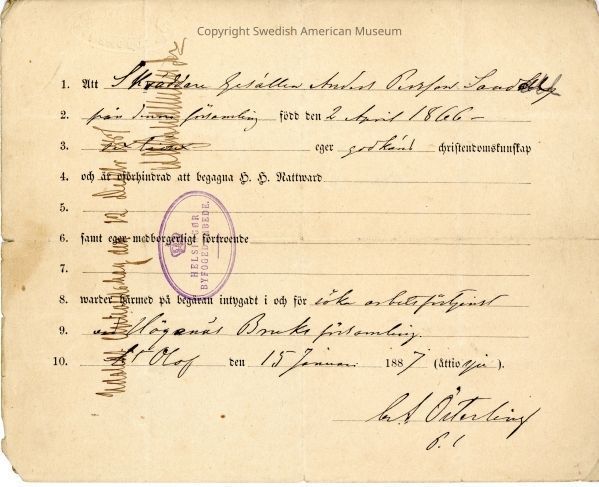 Copyright Swedish American Museum
1. Att Skräddare Gesällen Anders Persson
2. från denna församling född den 2 April 1866 –
3. eger godkänd christendomskunskap
4. och är oförhindrad att begagna H. H. Nattward
5.
6. samt eger medborgerligt förtroende
7.
8. warder härmed på begäran intygadt i och för söka arbetsförtjenst
9. Höganäs Bruks församling
10. St Olof den 15 Januari 1887 (åttio sju).
Österling
P. l
HELSINGØR
BYFOGEDARBEDE.